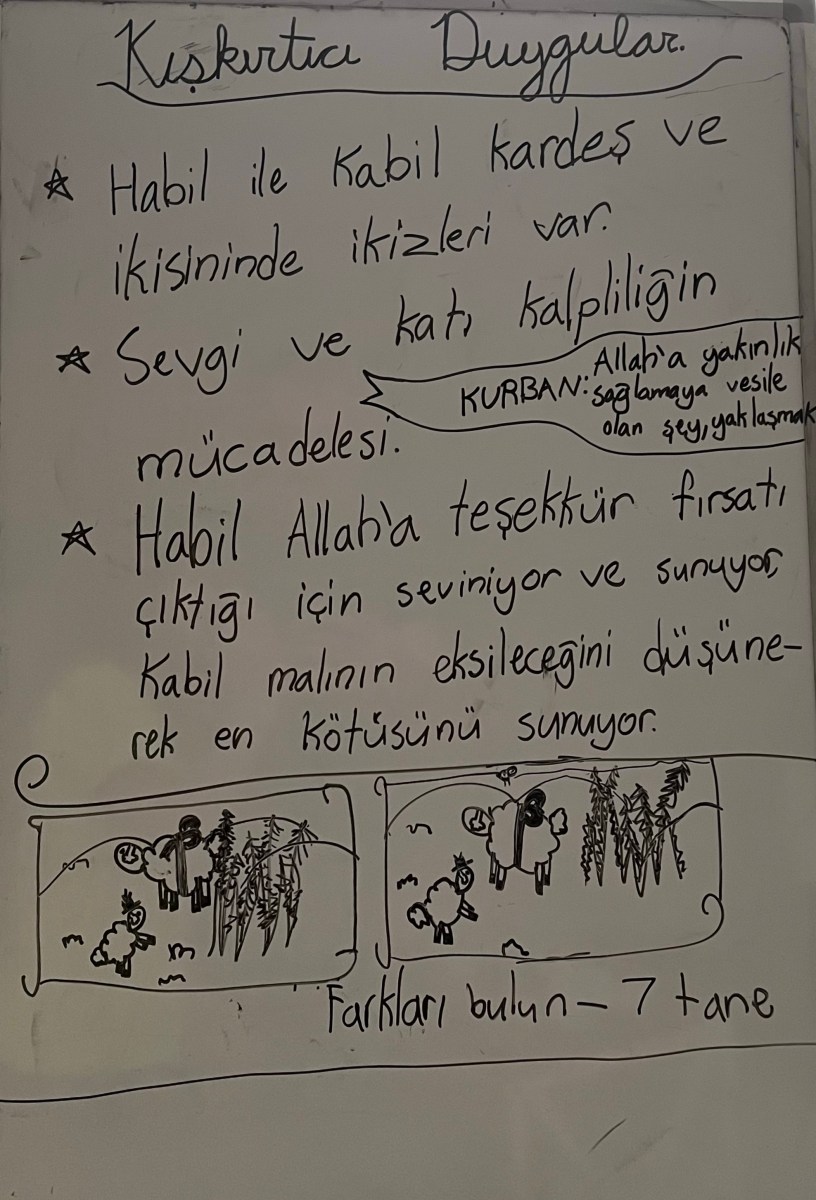 Kışkırtıcı Duygular.
☆ Habil ile Kabil kardeş ve
ikisininde ikizleri var.
☆ Sevgi ve katı kalpliliğin
mücadelesi.
KURBAN: Allah'a yakınlık
sağlamaya vesile
olan şey, yaklaşmak
☆ Habil Allah'a teşekkür fırsatı
çıktığı için seviniyor ve sunuyor,
Kabil malının eksileceğini düşüne-
rek en kötüsünü sunuyor.
Farkları bulun - 7 tane